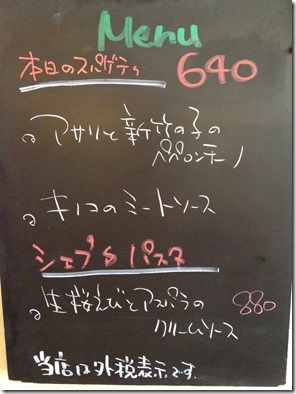 Menu
本日のスパゲティ 640
アサリと新竹の子の
ペペロンチーノ
キノコのミートソース
シェフ's パスタ
生桜えびとアスパラの 880
クリームソース
当店は外税表示です。